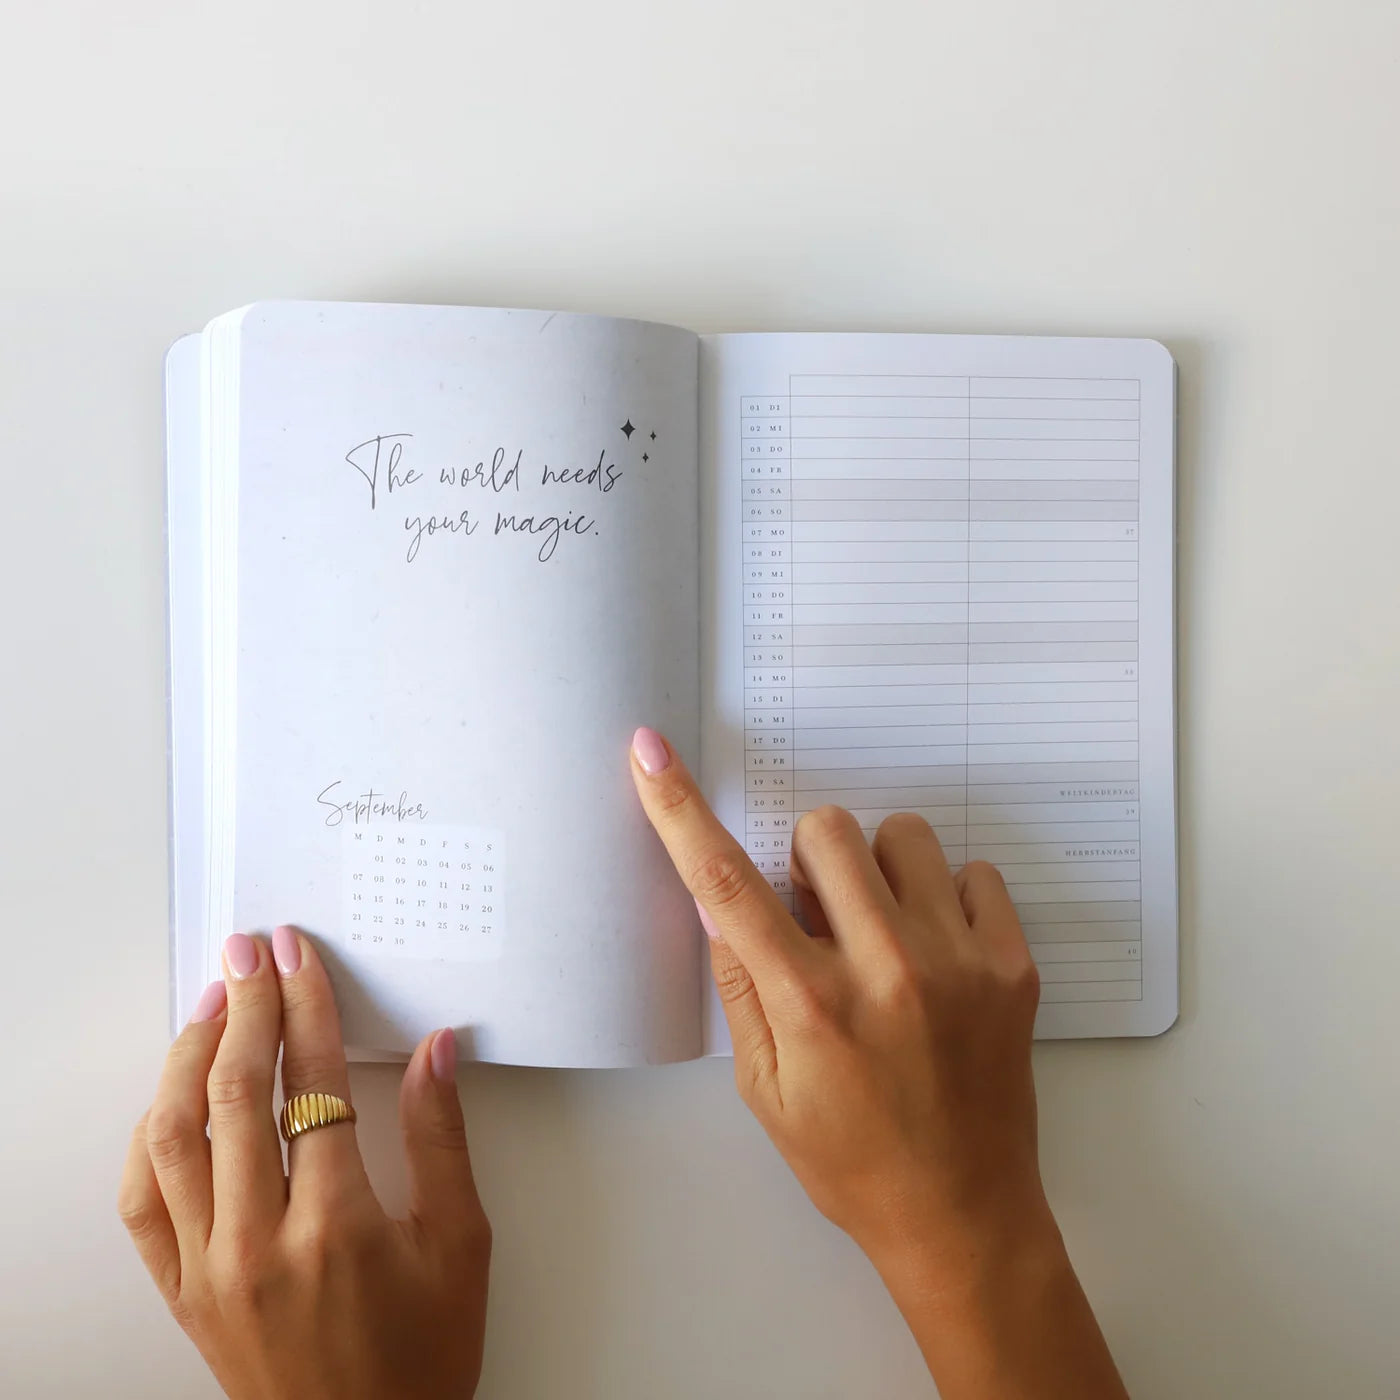 The world needs
your magic.
September
M D M D F S S
01 02 03 04 05 06
07 08 09 10 11 12 13
14 15 16 17 18 19 20
21 22 23 24 25 26 27
28 29 30
01 DI
02 MI
03 DO
04 FR
05 SA
06 SO
07 MO 37
08 DI
09 MI
10 DO
11 FR
12 SA
13 SO
14 MO 38
15 DI
16 MI
17 DO
18 FR
19 SA
20 SO WELTKINDERTAG
21 MO 39
22 DI
23 MI HERBSTANFANG
DO
40